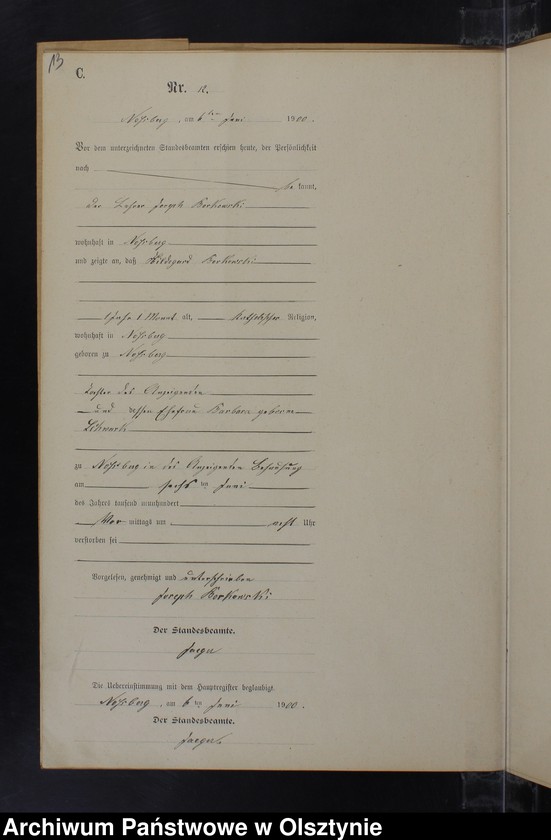 13
C.
Nr. 12.
Noßberg, am 6ten Juni 1900.
Vor dem unterzeichneten Standesbeamten erschien heute, der Persönlichkeit
nach
be kannt,
der Lehrer Joseph Borkowski
wohnhaft in Noßberg
und zeigte an, daß Hildegard Borkowski
1 Jahr 1 Monat alt, katholischer Religion,
wohnhaft in Noßberg
geboren zu Noßberg
Tochter des Anzeigenden
und dessen Ehefrau Barbara geborene
zu Noßberg in des Anzeigenden Behausung
am sechsten Juni
des Jahres tausend neunhundert
Vor mittags um acht Uhr
verstorben sei
Vorgelesen, genehmigt und unterschrieben
Joseph Borkowski
Der Standesbeamte.
Die Uebereinstimmung mit dem Hauptregister beglaubigt.
Noßberg, am 6ten Juni 1900.
Der Standesbeamte.
Archiwum Państwowe w Olsztynie